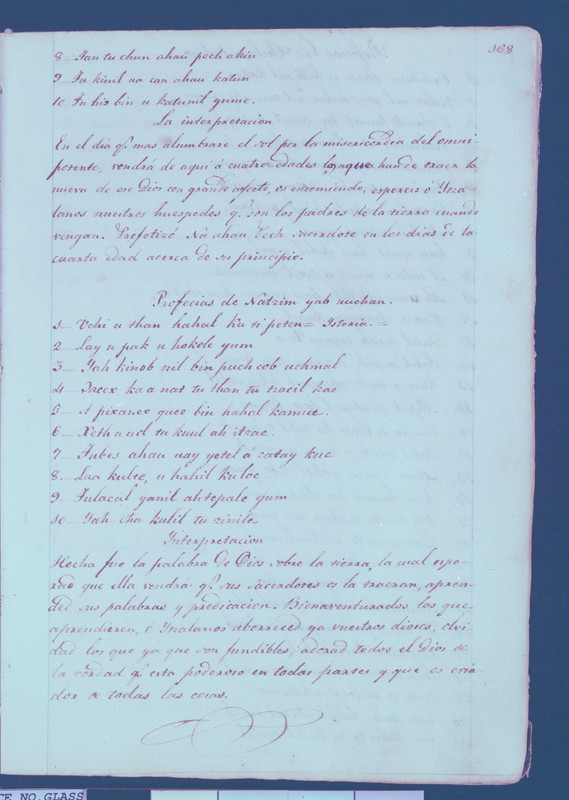 168
8 Tan tu chun ahau pech akin
9 Tu kinil ua can ahau katun
10 Tu hiɔ bin u katunil yume.
La interpretacion
En el dia q.e mas alumbrare el sol por la misericordia del omni-
potente, vendrá de aqui á cuatro edades los que han de traer la
nueva de ese Dios con grande afecto, os encomiendo, espereis ó Ytza-
lanos nuestros huespedes q.e son los padres de la tierra cuando
vengan. Profetizó Na ahau Pech sacerdote en los dias de la
cuarta edad acerca de su principio.
Profecias de Natzim yab uuchan.
1 Uchi u than hahal ku ti peten = Ystoria. =
2 Lay u pak u hokole yum
3 Yah kinob uil bin puch cob uchmal
4 Dzeex ka a nat tu than tu tzacil kae
5 A pixanex quee bin hahal kamice.
6 Xeth a uil tu kuul ah itzae.
7 Tubes ahau uay yetel á zatay kue
8 Laa kulte, u hahil kuloe
9 Tulacal yanil ahtepale yum
10 Yah cha kulil tu zinile
Interpretacion
Hecha fue la palabra de Dios sobre la tierra, la cual espe-
rad que ella vendrá q.e sus sacerdotes os la traeran, apren-
ded sus palabras y predicacion. Bienaventurados los que
aprendieren, ó Ytzalanos aborreced ya vuestros dioses, olvi-
dad los que ya que son fundibles, adorad todos el Dios de
la verdad q.e esta poderoso en todas partes y que es cria-
dor de todas las cosas.
CE NO. GLASS